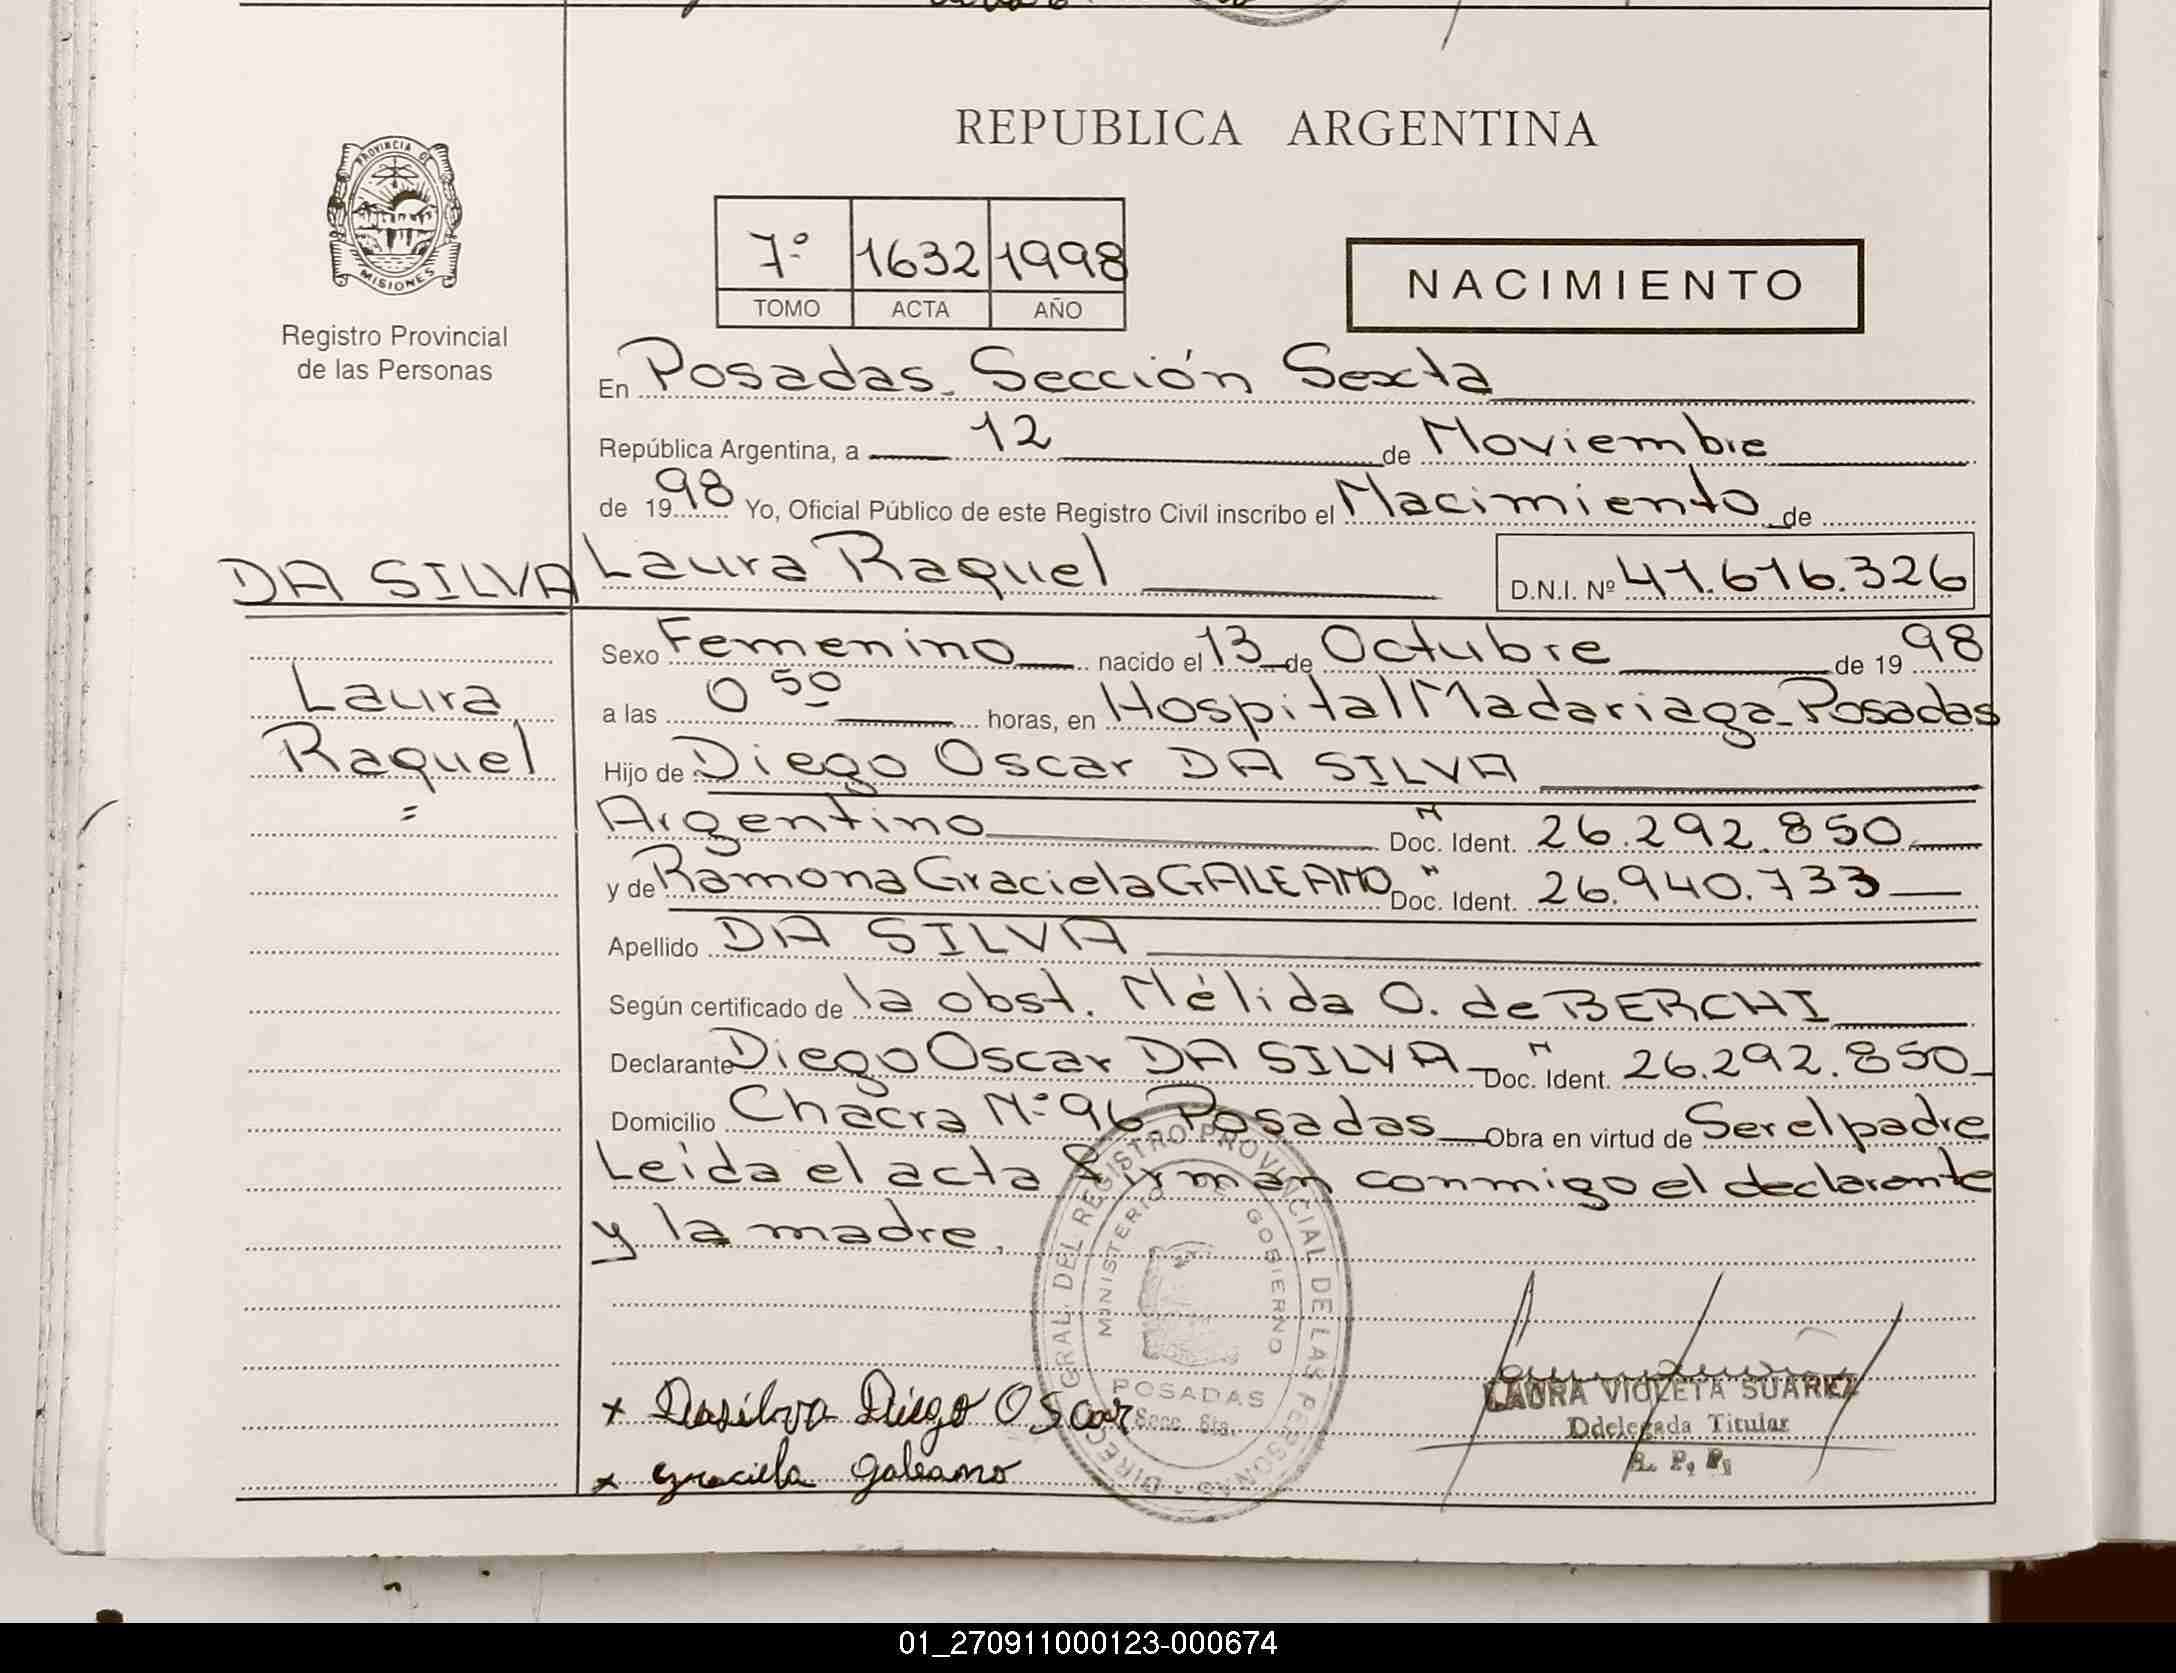 REPUBLICA ARGENTINA
PROVINCIA DE MISIONES
Registro Provincial
de las Personas
7º 1632 1998
TOMO ACTA AÑO
NACIMIENTO
En Posadas - Sección Sexta
República Argentina, a 12 de Noviembre
de 1998 Yo, Oficial Público de este Registro Civil inscribo el Nacimiento de
DA SILVA Laura Raquel D.N.I. Nº 41.616.326
Laura
Raquel
=
Sexo Femenino nacido el 13 de Octubre de 1998
a las 0 50 horas, en Hospital Madariaga - Posadas
Hijo de Diego Oscar DA SILVA
Argentino Doc. Ident. N 26.292.850
y de Ramona Graciela GALEANO Doc. Ident. " 26.940.733
Apellido DA SILVA
Según certificado de la obst. Nélida O. de BERCHI
Declarante Diego Oscar DA SILVA - Doc. Ident. N 26.292.850
Domicilio Chacra Nº 96 Posadas - Obra en virtud de Ser el padre
Leída el acta firman conmigo el declarante
y la madre.
DIRECC. GRAL. DEL REGISTRO PROVINCIAL DE LAS PERSONAS
MINISTERIO DE GOBIERNO
POSADAS
Secc. 6ta.
x Dasilva Diego Oscar
x Graciela Galeano
LAURA VIOLETA SUAREZ
Ddelegada Titular
R. P. P.
01_270911000123-000674